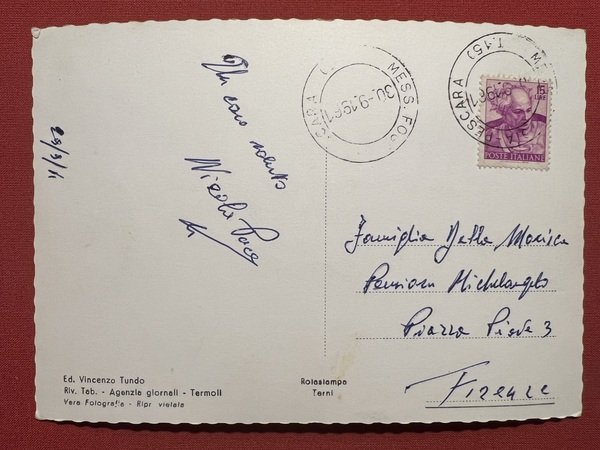 Un caro saluto
Nicola Pace
MESS. FOG
30.-9.1961
PESCARA
15 LIRE
POSTE ITALIANE
Famiglia Della
Pensione Michelangelo
Piazza Piave 3
Firenze
Ed. Vincenzo Tundo
Riv. Tab. - Agenzia giornali - Termoli
Vera Fotografia - Ripr. vietata
Rotostampa
Terni